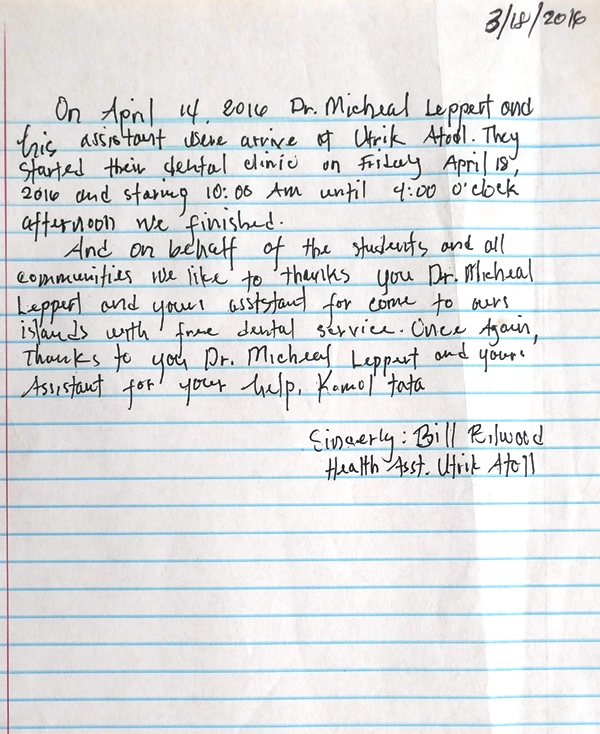 3/18/2016
On April 14, 2016 Dr. Micheal Leppert and
his assistant were arrive at Utrik Atool. They
started their dental clinic on Friday April 18,
2016 and staring 10:00 Am until 4:00 o'clock
afternoon we finished.
And on behalf of the students and all
communities we like to thanks you Dr. Micheal
Leppert and yours asststant for come to ours
islands with free dental service. Once Again,
Thanks to you Dr. Micheal Leppert and yours
Assistant for your help. Komol tata
Sincerly: Bill Rilwood
Health Asst. Utrik Atoll